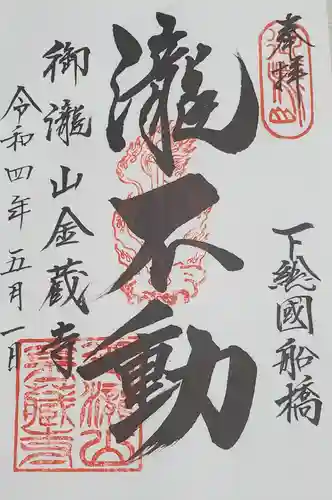 奉拝
下総國船橋
瀧不動
御瀧山金蔵寺
令和四年五月一日